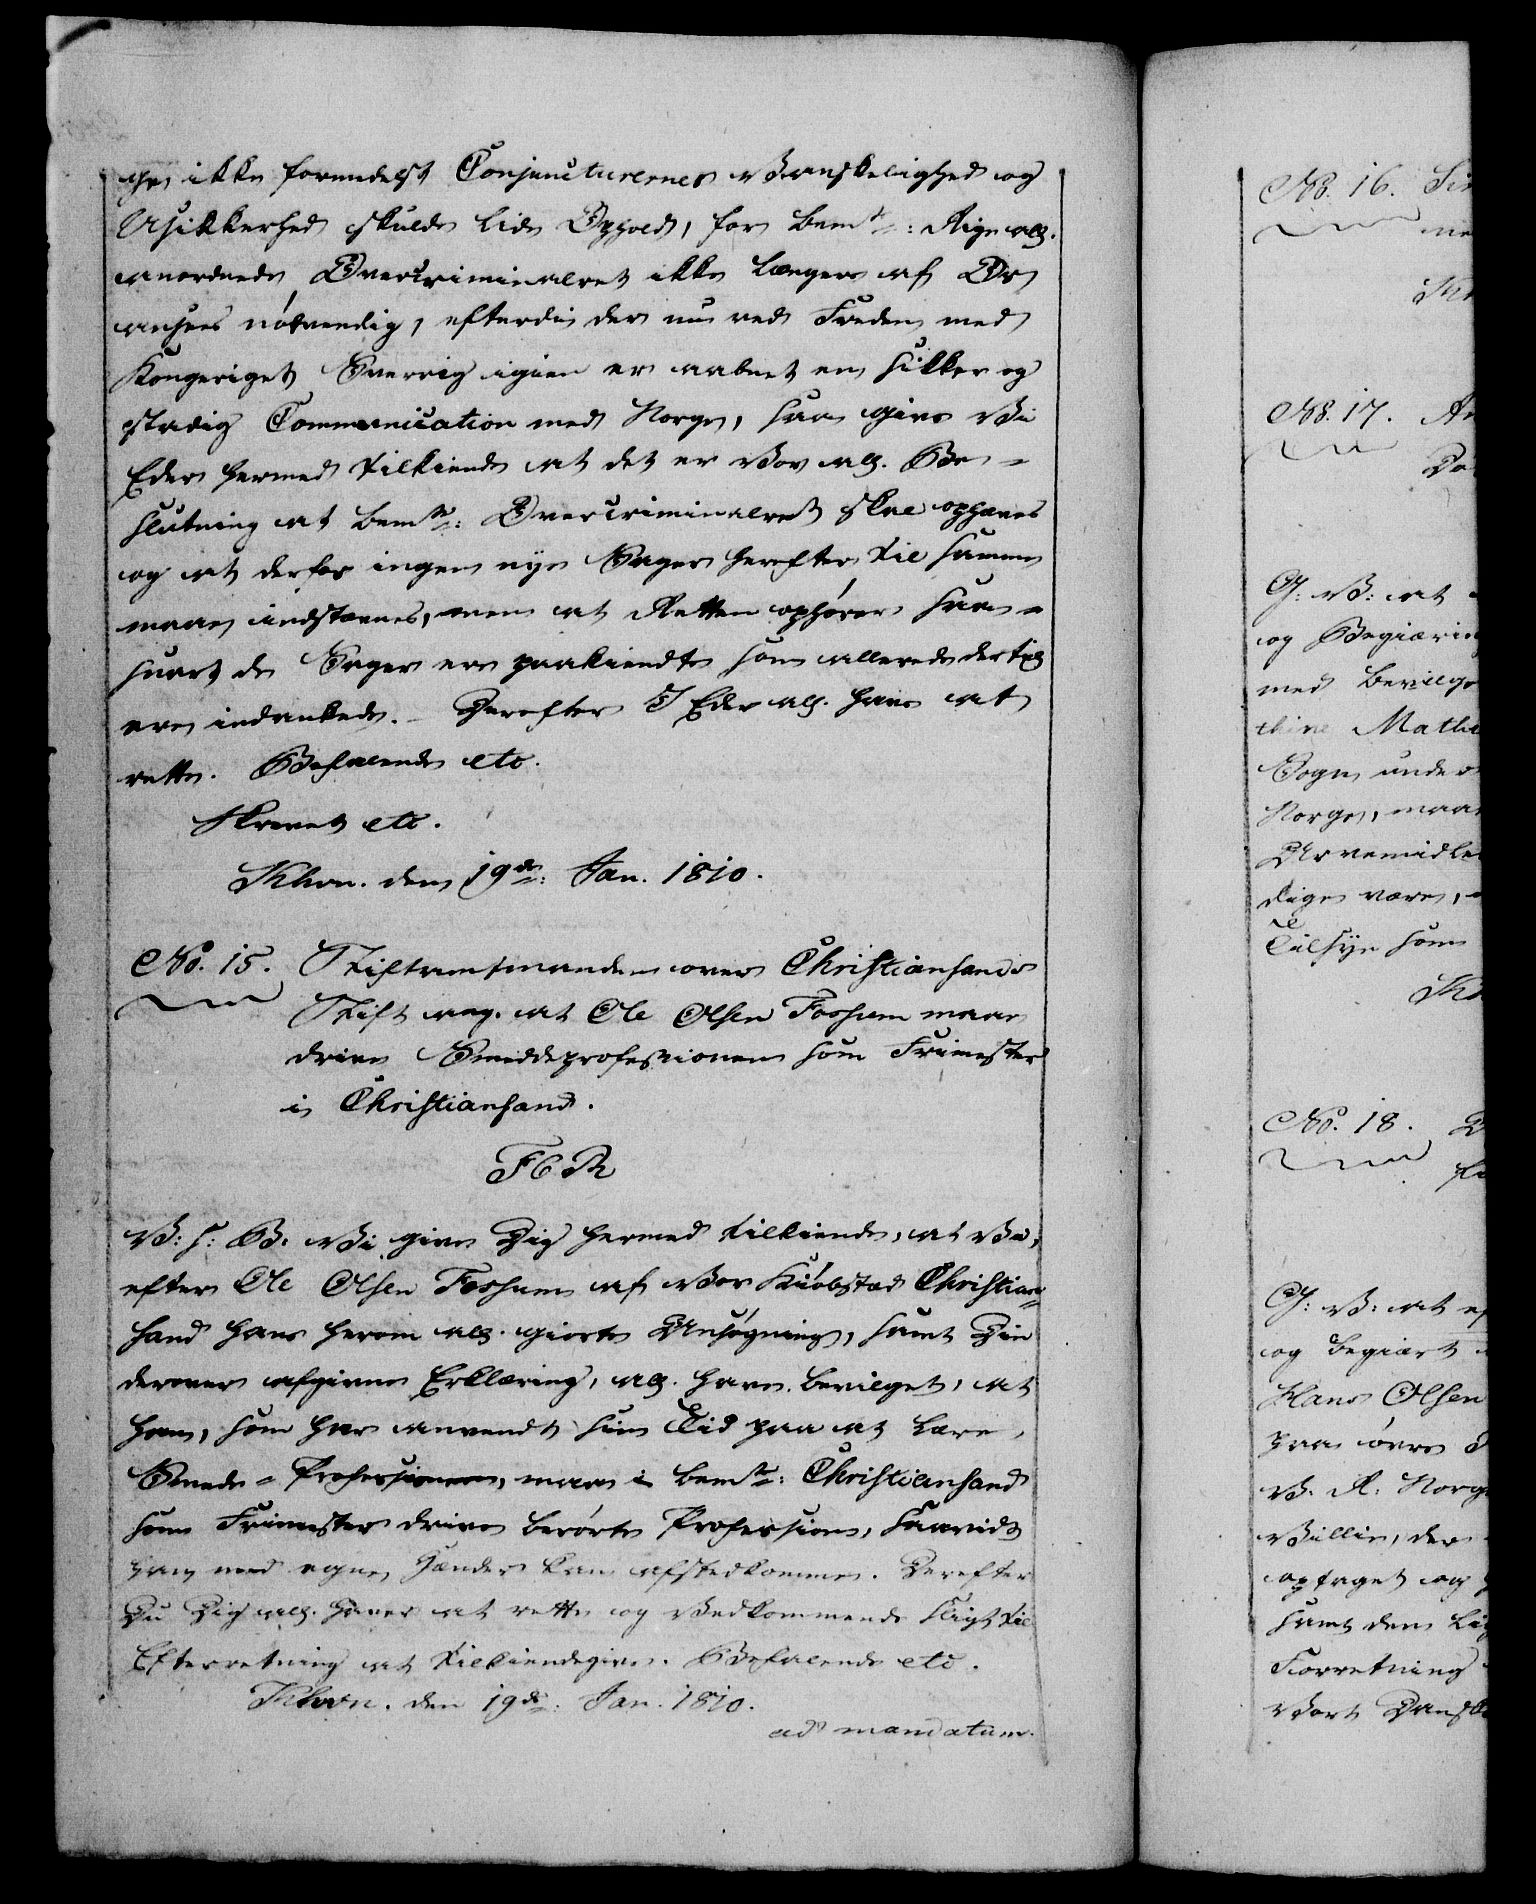 ge, ikke formedelst Conjuncturernes Vanskelighed og
Usikkerhed skulde lide Ophold, for bemte: Rige all.
anordnede Overcriminalret ikke længere af Os
ansees nödvendig, efterdi der nu ved Freden med
Kongeriget Sverrig igien er aabnet en sikker og
stadig Communication med Norge, saa give Vi
Eder hermed tilkiende at det er Vor all. Be-
slutning at bemte: Overcriminalret skal ophæves
og at derfor ingen nye Sager herefter til samme
maae indstævnes, men at Retten ophører saa-
snart de Sager ere paakiendte som allerede dertil
ere indankede. - Derefter I Eder all. have at
rette. Befalende etc.
Skrevet etc.
Khvn. den 19de: Jan. 1810.
No. 15. Stiftamtmanden over Christiansands
Stift ang. at Ole Olsen Fossum maae
drive Smeddeprofessionen som Frimester
i Christiansand.
F6R
V: s: G. Vi give Dig hermed tilkiende, at Vi,
efter Ole Olsen Fossum af Vor Kiøbstad Christian-
sand hans herom all. giorte Ansøgning, samt Din
derover afgivne Erklæring, all. have bevilget, at
han, som har anvendt sin Tid paa at lære
Smede-Professionen, maae i bemte: Christiansand
som Frimester drive berørte Profession, saavidt
han med egne Hænder kan afstedkomme. Derefter
Du Dig all. haver at rette og Vedkommende sligt til
Efterretning at tilkiendegive. Befalende etc.
Khvn. den 19de: Jan. 1810.
ad mandatum.
No. 16.
No. 17.
G: V: at
og Begiæring
med bevilge
thine Mathi
Sogn under
Norge, maae
Arvemidler
dige være,
Tilsyn som
No. 18.
G: V: at ef
og begiært
Hans Olsen
paa
V. R. Norge
Villie, der
optaget og
samt den
Forretning
Vort Danske